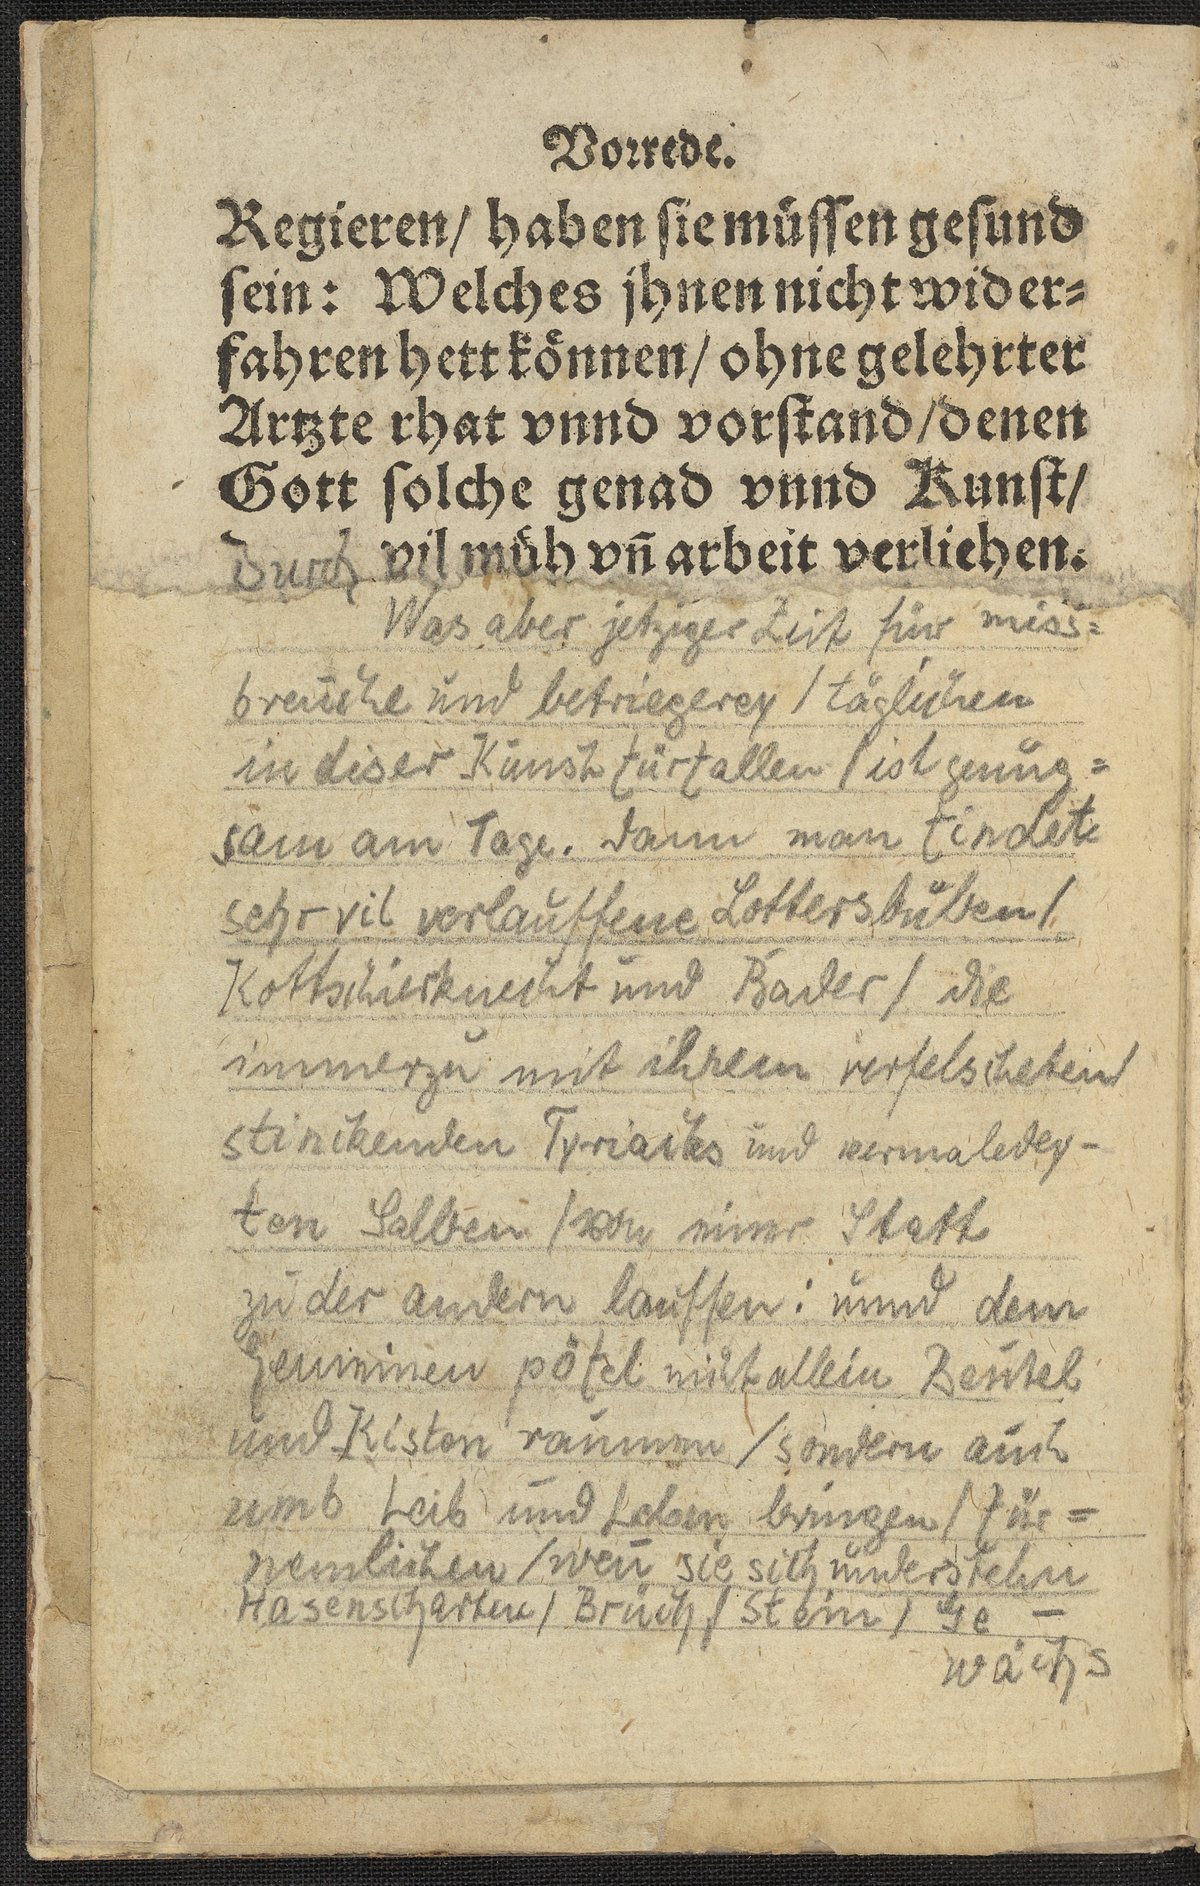 Vorrede.
Regieren/ haben sie müssen gesund
sein: Welches jhnen nicht wider=
fahren hett können/ ohne gelehrter
Artzte rhat vnnd vorstand/ denen
Gott solche genad vnnd Kunst/
durch vil müh vn̄ arbeit verliehen.
Was aber jetziger Zeit für miss=
breuche und betriegerey / täglichen
in diser Kunst fürfallen / ist genug=
sam am Tage. Dann man findet
sehr vil verlauffene Lottersbüben /
Kottschierknecht und Bader / die
immerzu mit ihrem verfelscheten /
stinckenden Tyriacks und vermaledey-
ten Salben / von einer Statt
zu der andern lauffen: unnd dem
Gemeinen pöfel nicht allein Beutel
und Kisten raumen / sondern auch
umb Leib und Leben bringen / für=
nemlichen / weñ sie sich understehn
Hasenscharten / Brüch / Stein / Ge-
wächs